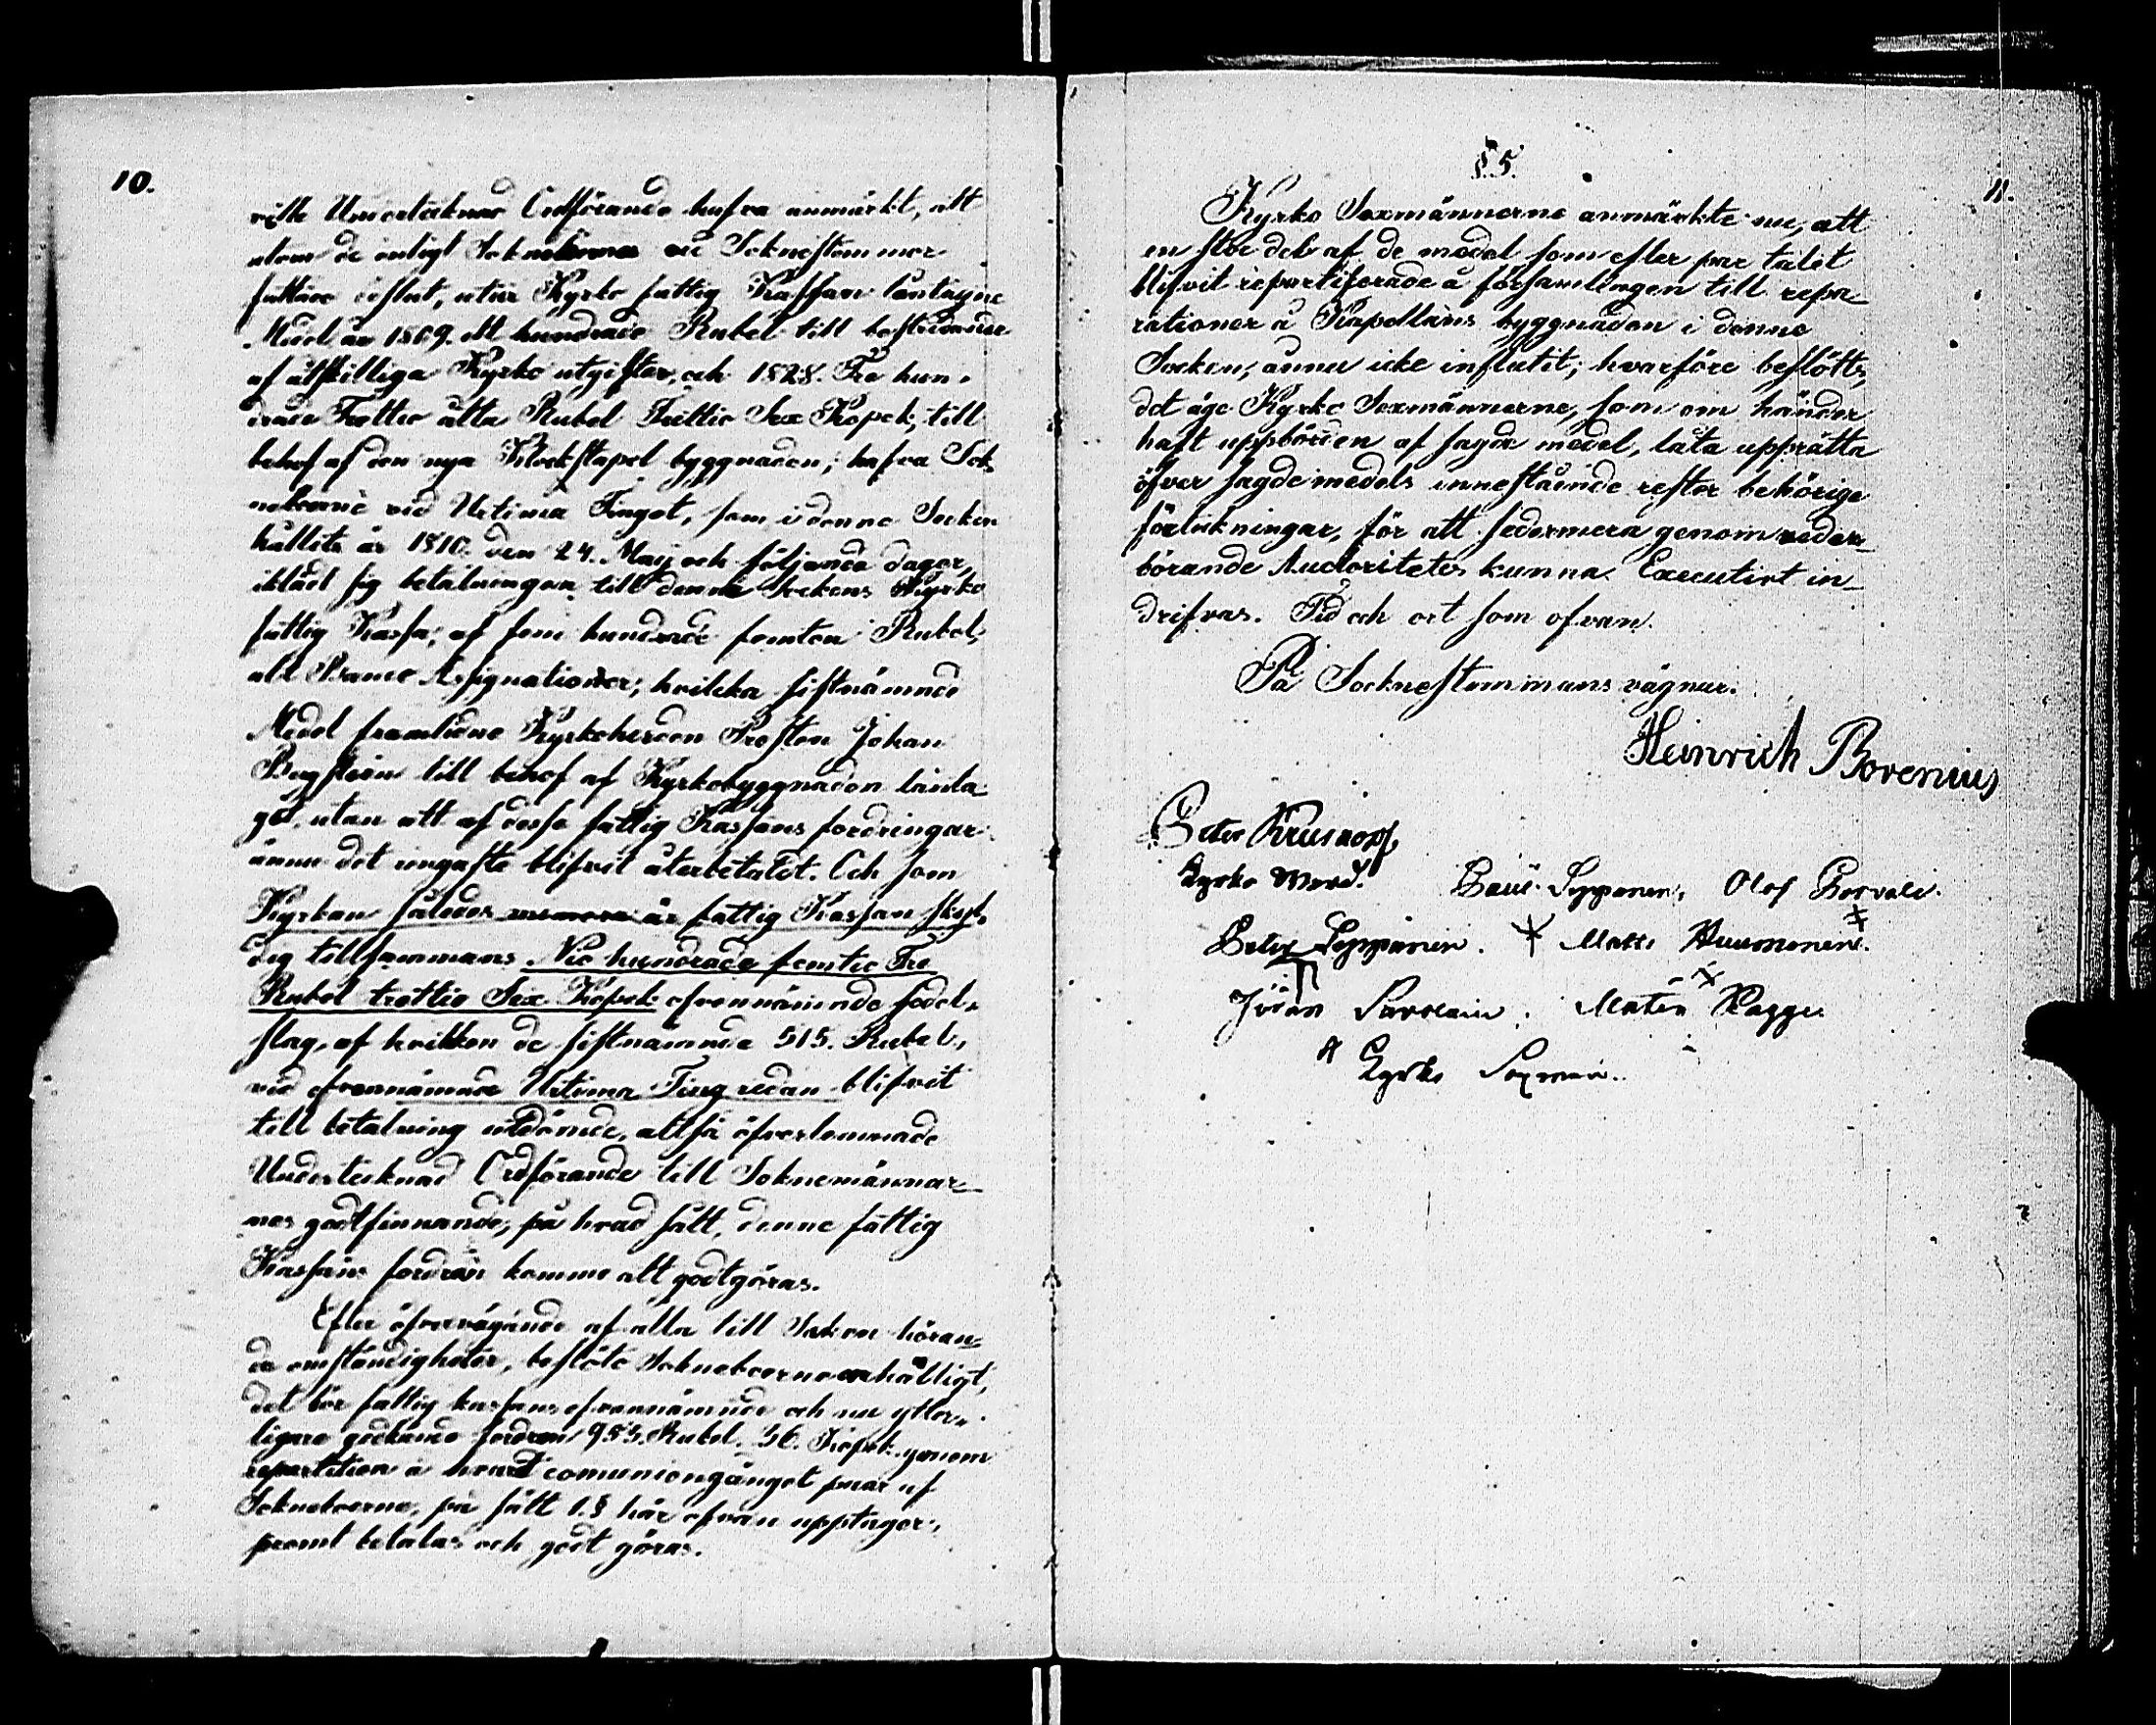 10.
Undertecknad Ordförande hafva anmärkt, att
utom de enligt Sockneboerne vid Socknestemmor
fattade beslut, utur Kyrko fattig Kassan låntagne
Medel år 1809. Ett hundrade Rubel till bestridande
af åtskilliga Kyrko utgifter, och 1828. Tre hun-
drade Trettio åtta Rubel Trettio Sex Kopek, till
behof af den nya Klockstapel byggnaden; hafva Sok-
neboerne vid Urtima Tinget, som i denne Socken
hållits år 1810. den 24. Maij och följande dagar,
iklädt sig betalningen till denna Sockens Kyrko
fattig Kassa, af fem hundrade femton Rubel,
allt Banco Assignationer; hvilcka sistnämnde
Medel framlidne Kyrkoherden Prosten Johan
till behof af Kyrkobyggnaden lånta-
get, utan att af desse fattig Kassans fordringar
ännu det ringaste blifvit återbetaldt. Och som
Kyrkan således är fattig Kassan skyl-
dig tillsammans Nio hundrade femtio Tre
Rubel trettio Sex Kopek ofvannämnde sedel-
slag, af hvilken de sistnämnde 515. Rubel,
vid ofvannämnde Urtima Ting redan blifvit
till betalning utdömde, alltså öfverlemnade
Undertecknad Ordförande till Soknemännar-
nes godtfinnande, på hvad sätt, denne fattig
Kassans fordran komme att godtgöras.
Efter öfvervägande af alla till Saken höran-
de omständigheter, beslöto Sokneboerne enhälligt,
det bör fattig kassans ofvannämnde och nu ytter-
ligare godkände fordran 953. Rubel. 36. Kopek genom
repartition å hvart comuniongånget paar af
Sokneboerne, på sätt 1.§ här ofvan upptager,
promt betalas och godt göras.
§.5.
11.
Kyrko Sexmännerne anmärkte nu, att
en stor del af de medel som efter par talet
blifvit repartiserade å församlingen till repa-
rationer å Kapellans byggnaden i denne
Socken, ännu icke influtit; hvarföre beslöts,
det äge Kyrko Sexmännerne, som om händer
haft uppbörden af sagde medel, låta upprätta
öfver sagde medels innestående rester behörige
förtekningar, för att sedermera genom veder-
börande Auctoriteter kunna Executivt in-
drifvas. Tid och ort som ofvan.
På Socknestemmans vägnar.
Heinrich Borenius
Peter Krusnopf
Kyrko Werd. Seppenen, Olof
Peter Seppänen. Matts Huumonen.
Jöran Matts
Kyrko Sexmän.